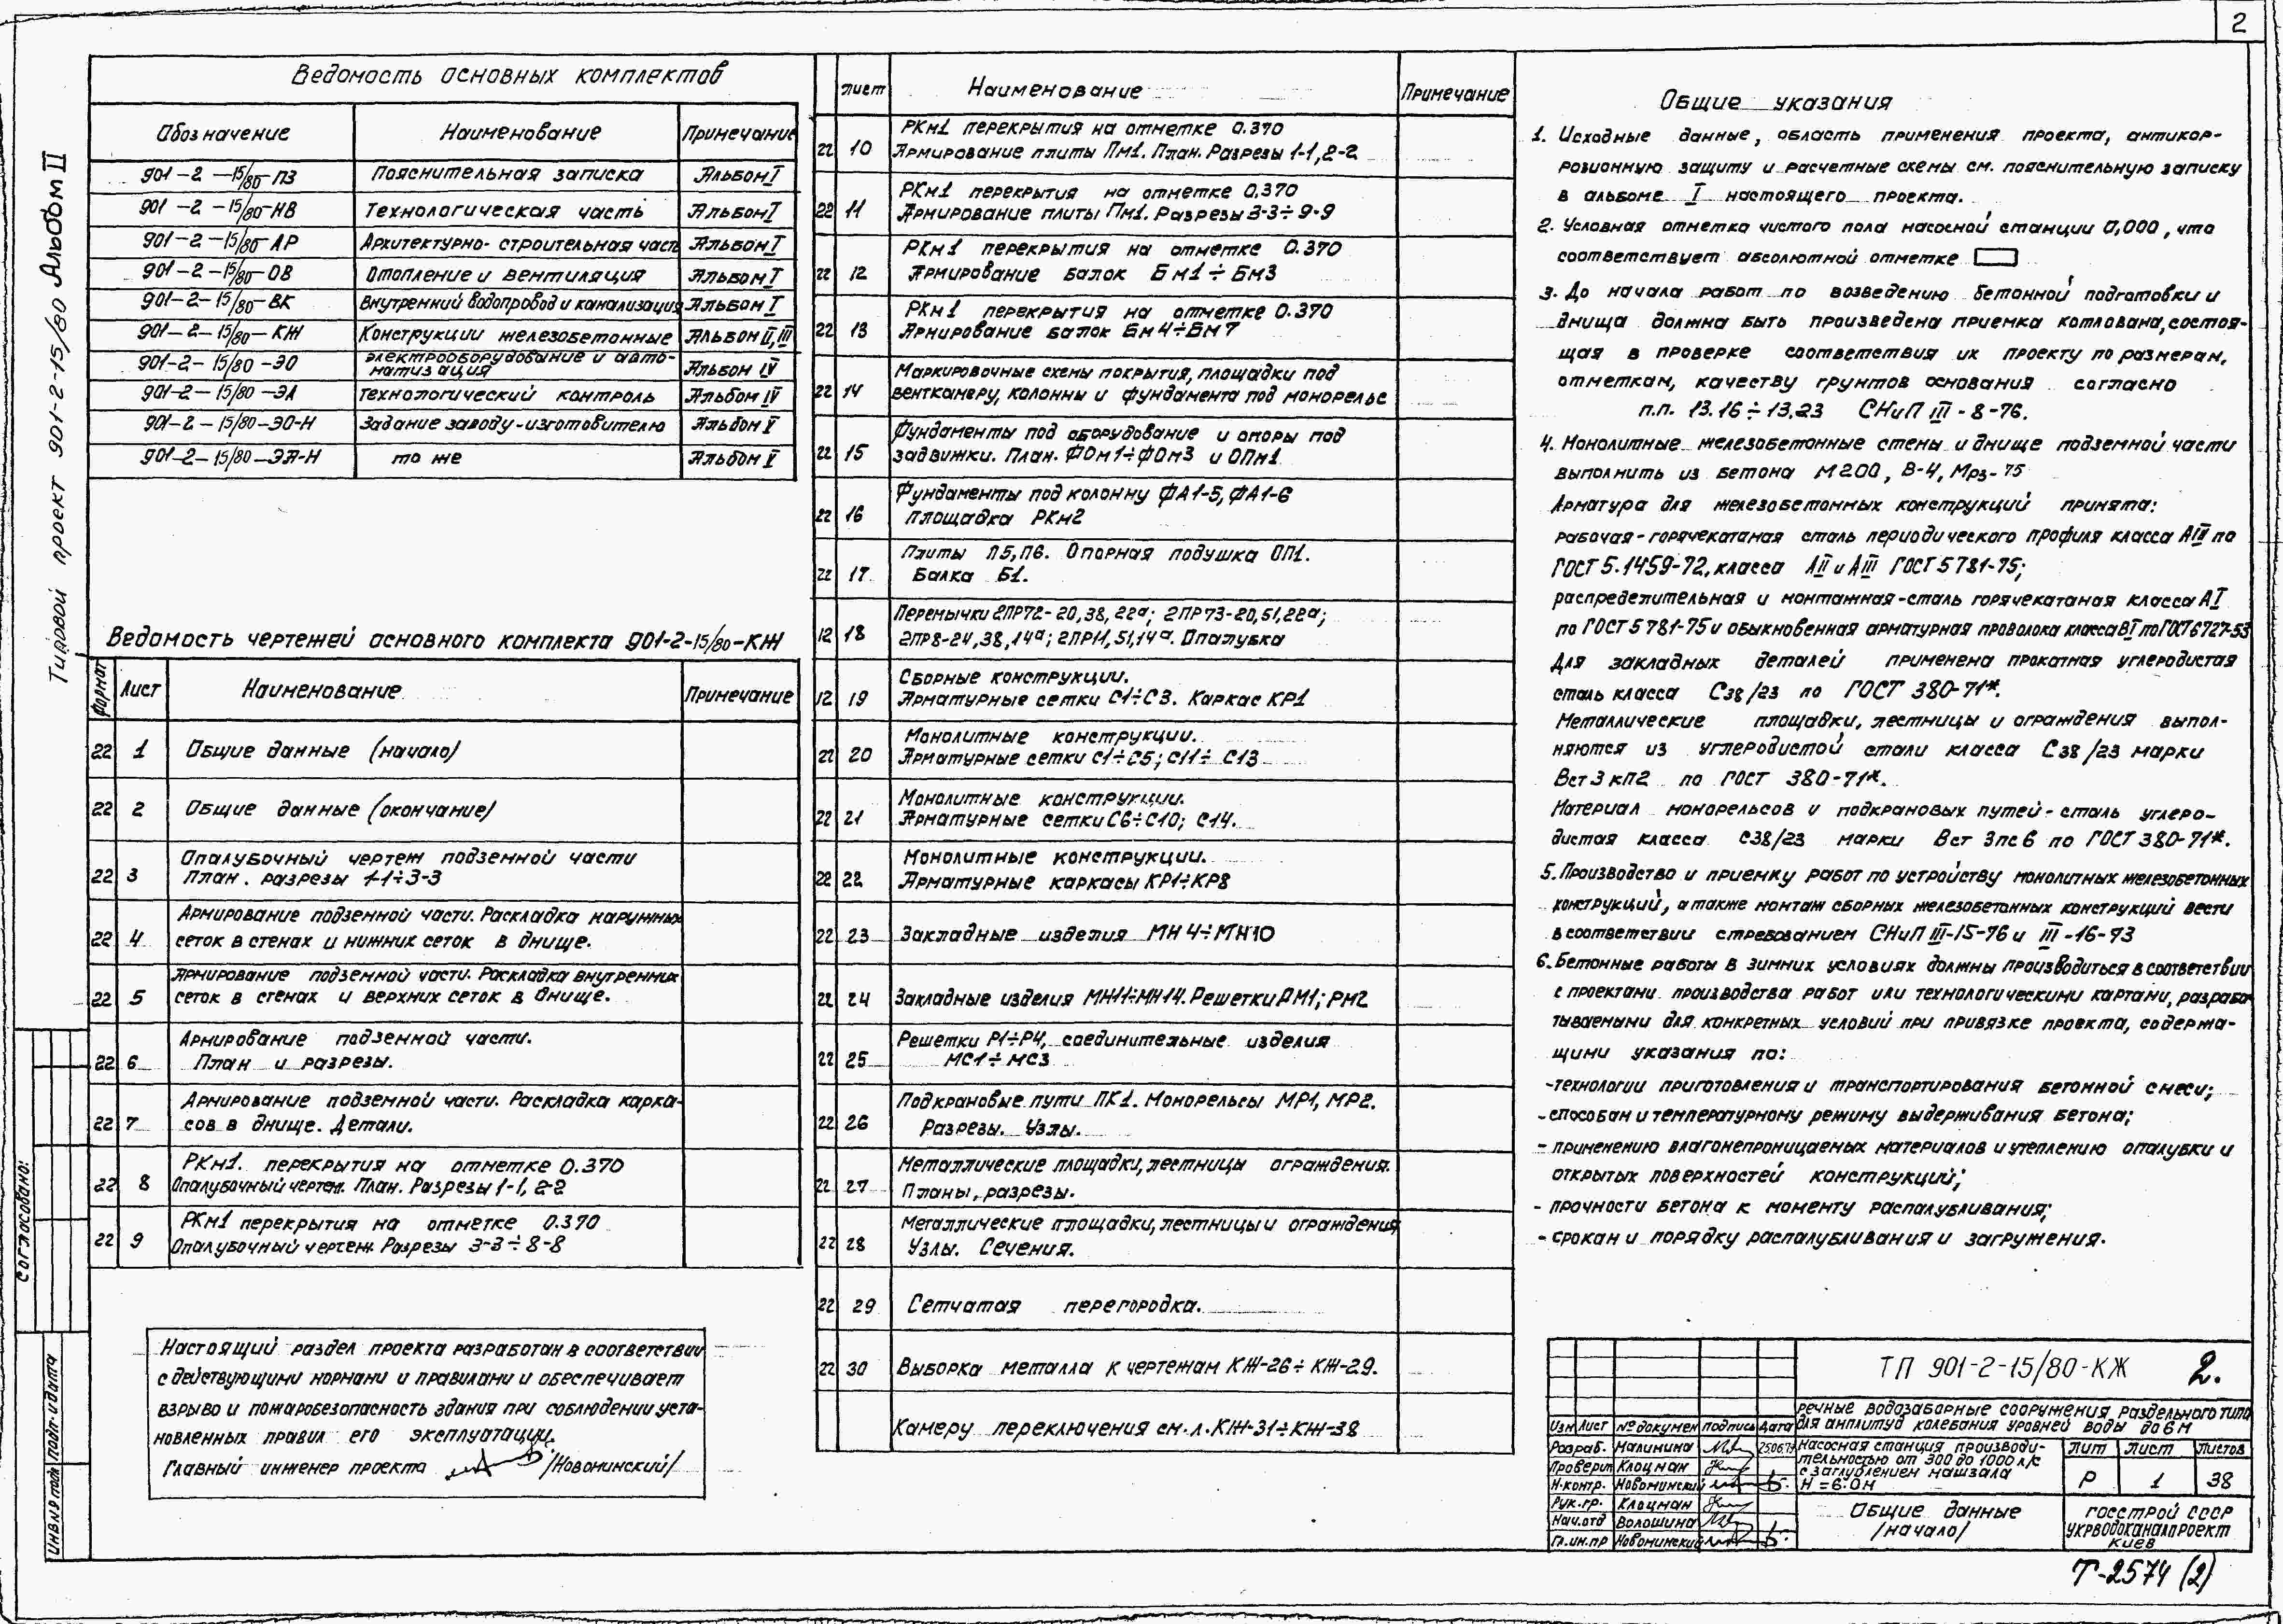 2
Типовой проект 901-2-15/80 Альбом II
Ведомость основных комплектов
Обозначение Наименование Примечание
901-2-15/80-ПЗ Пояснительная записка Альбом I
901-2-15/80-НВ Технологическая часть Альбом I
901-2-15/80-АР Архитектурно-строительная часть Альбом I
901-2-15/80-ОВ Отопление и вентиляция Альбом I
901-2-15/80-ВК Внутренний водопровод и канализация Альбом I
901-2-15/80-КЖ Конструкции железобетонные Альбом II, III
901-2-15/80-ЭО Электрооборудование и авто-
матизация Альбом IV
901-2-15/80-ЭА Технологический контроль Альбом IV
901-2-15/80-ЭО-Н Задание заводу-изготовителю Альбом V
901-2-15/80-ЭА-Н то же Альбом V
Ведомость чертежей основного комплекта 901-2-15/80-КЖ
Формат Лист Наименование Примечание
22 1 Общие данные (начало)
22 2 Общие данные (окончание)
22 3 Опалубочный чертеж подземной части
План. разрезы 1-1÷3-3
22 4 Армирование подземной части. Раскладка наружных
сеток в стенах и нижних сеток в днище.
22 5 Армирование подземной части. Раскладка внутренних
сеток в стенах и верхних сеток в днище.
22 6 Армирование подземной части.
План и разрезы.
22 7 Армирование подземной части. Раскладка карка-
сов в днище. Детали.
22 8 РКм1. перекрытия на отметке 0.370
Опалубочный чертеж. План. Разрезы 1-1, 2-2
22 9 РКм1 перекрытия на отметке 0.370
Опалубочный чертеж. Разрезы 3-3÷8-8
Настоящий раздел проекта разработан в соответствии
с действующими нормами и правилами и обеспечивает
взрыво и пожаробезопасность здания при соблюдении уста-
новленных правил его эксплуатации.
Главный инженер проекта /Новоминский/
Лист Наименование Примечание
22 10 РКм1 перекрытия на отметке 0.370
Армирование плиты Пм1. План. Разрезы 1-1, 2-2
22 11 РКм1 перекрытия на отметке 0.370
Армирование плиты Пм1. Разрезы 3-3÷9-9
22 12 РКм1 перекрытия на отметке 0.370
Армирование балок Бм1÷Бм3
22 13 РКм1 перекрытия на отметке 0.370
Армирование балок Бм4÷Бм7
22 14 Маркировочные схемы покрытия, площадки под
венткамеру, колонны и фундамента под монорельс
22 15 Фундаменты под оборудование и опоры под
задвижки. План. ФОм1÷ФОм3 и ОПм1
22 16 Фундаменты под колонну ФА1-5, ФА1-6
площадка РКм2
22 17 Плиты П5, П6. Опорная подушка ОП1.
Балка Б1.
12 18 Перемычки 2ПР72-20, 38, 22а; 2ПР73-20, 51, 22а;
2ПР8-24, 38, 14а; 2ПР11, 51, 14а. Опалубка
12 19 Сборные конструкции.
Арматурные сетки С1÷С3. Каркас КР1
22 20 Монолитные конструкции.
Арматурные сетки С1÷С5; С11÷С13
22 21 Монолитные конструкции.
Арматурные сетки С6÷С10; С14.
22 22 Монолитные конструкции.
Арматурные каркасы КР1÷КР8
22 23 Закладные изделия МН4÷МН10
22 24 Закладные изделия МН11÷МН14. Решетки РМ1; РМ2
22 25 Решетки Р1÷Р4, соединительные изделия
МС1÷МС3
22 26 Подкрановые пути ПК1. Монорельсы МР1, МР2.
Разрезы. Узлы.
22 27 Металлические площадки, лестницы ограждения.
Планы, разрезы.
22 28 Металлические площадки, лестницы и ограждения,
Узлы. Сечения.
22 29 Сетчатая перегородка.
22 30 Выборка металла к чертежам КЖ-26÷КЖ-29.
Камеру переключения см. л. КЖ-31÷КЖ-38
Общие указания
1. Исходные данные, область применения проекта, антикор-
розионную защиту и расчетные схемы см. пояснительную записку
в альбоме I настоящего проекта.
2. Условная отметка чистого пола насосной станции 0,000, что
соответствует абсолютной отметке
3. До начала работ по возведению бетонной подготовки и
днища должна быть произведена приемка котлована, состоя-
щая в проверке соответствия их проекту по размерам,
отметкам, качеству грунтов основания согласно
п.п. 13.16÷13.23 СНиП III-8-76.
4. Монолитные железобетонные стены и днище подземной части
выполнить из бетона М200, В-4, Мрз-75
Арматура для железобетонных конструкций принята:
рабочая-горячекатаная сталь периодического профиля класса АIII по
ГОСТ 5.1459-72, класса АII и АIII ГОСТ 5781-75;
распределительная и монтажная-сталь горячекатаная класса АI
по ГОСТ 5781-75 и обыкновенная арматурная проволока класса ВI по ГОСТ 6727-53
Для закладных деталей применена прокатная углеродистая
сталь класса С38/23 по ГОСТ 380-71*.
Металлические площадки, лестницы и ограждения выпол-
няются из углеродистой стали класса С38/23 марки
Вст3кп2 по ГОСТ 380-71*.
Материал монорельсов и подкрановых путей-сталь углеро-
дистая класса С38/23 марки Вст 3пс6 по ГОСТ 380-71*.
5. Производство и приемку работ по устройству монолитных железобетонных
конструкций, а также монтаж сборных железобетонных конструкций вести
в соответствии с требованием СНиП III-15-76 и III-16-73
6. Бетонные работы в зимних условиях должны производиться в соответствии
с проектами производства работ или технологическими картами, разраба-
тываемыми для конкретных условий при привязке проекта, содержа-
щими указания по:
-технологии приготовления и транспортирования бетонной смеси;
-способам и температурному режиму выдерживания бетона;
- применению влагонепроницаемых материалов и утеплению опалубки и
открытых поверхностей конструкций;
- прочности бетона к моменту распалубливания;
- срокам и порядку распалубливания и загружения.
ТП 901-2-15/80-КЖ 2.
речные водозаборные сооружения раздельного типа
для амплитуд колебания уровней воды до 6 м
Изм Лист № докумен подпись Дата
Разраб. Малинина 25.06.79
Проверил Клоцман
Н.контр. Новоминский
Рук.гр. Клоцман
Нач.отд Волошина
Гл.ин.пр Новоминский
Насосная станция производи-
тельностью от 300 до 1000 л/с
с заглублением машзала
Н=6.0м
Лит Лист Листов
Р 1 38
Общие данные
/начало/
Госстрой СССР
Укрводоканалпроект
Киев
Т-2574 (2)
Согласовано:
Инв.№ подл Подп. и дата